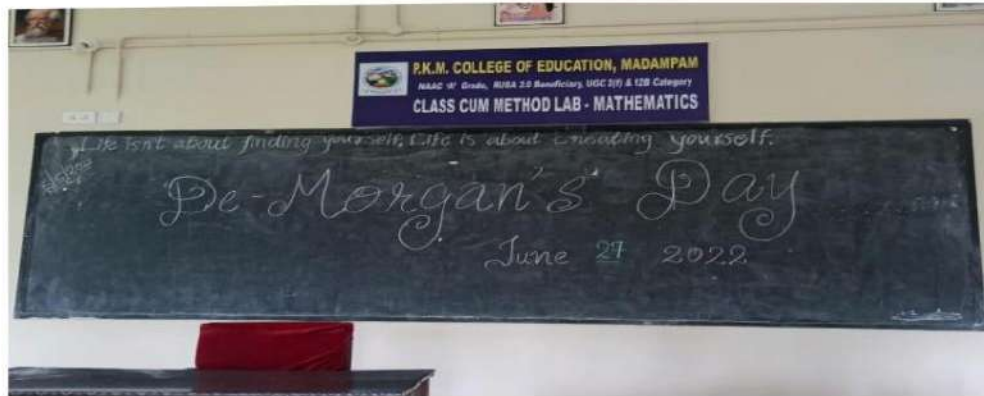 P.K.M. COLLEGE OF EDUCATION, MADAMPAM
NAAC 'A' Grade, RUSA 2.0 Beneficiary, UGC 2(f) & 12B Category
CLASS CUM METHOD LAB - MATHEMATICS
Life isn't about finding yourself, Life is about Creating yourself.
De-Morgan's Day
June 27 2022